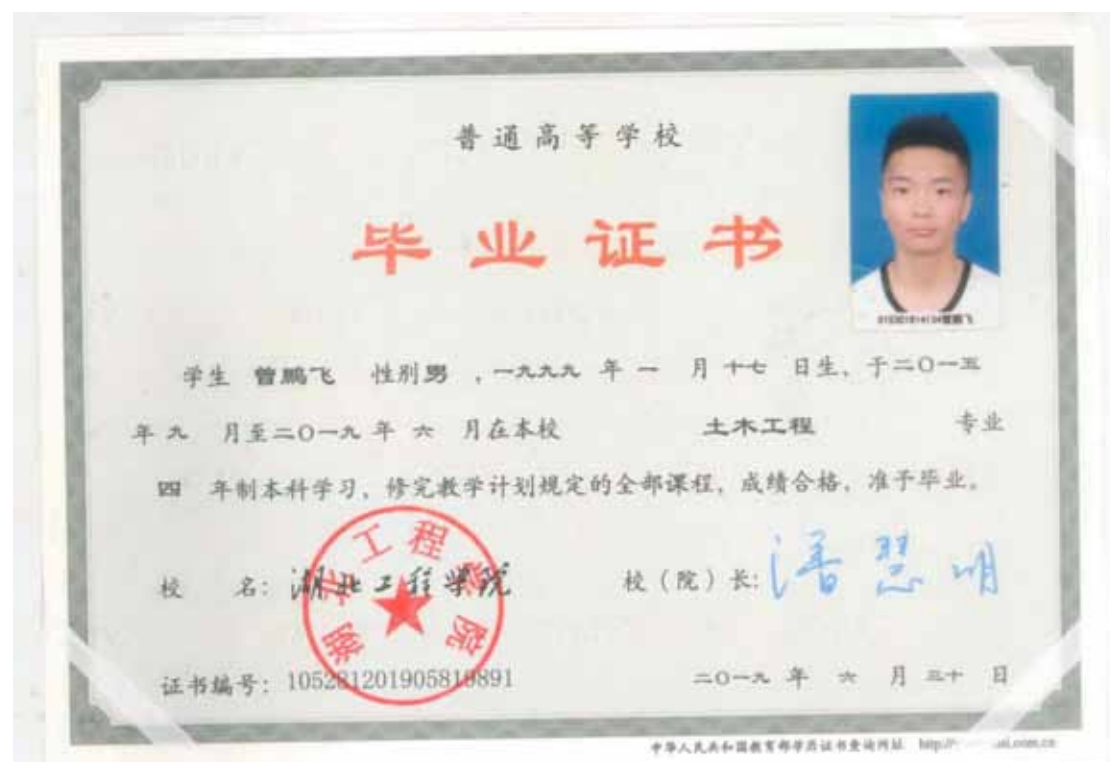 普通高等学校
毕业证书
曾鹏飞
学生 曾鹏飞 性别 男 ,一九九九 年 一 月 十七 日生、于二〇一五
年 九 月至二〇一九 年 六 月在本校 土木工程 专业
四 年制本科学习,修完教学计划规定的全部课程,成绩合格,准予毕业。
校 名: 湖北工程学院
湖北工程学院
校(院)长: 潘慧明
证书编号: 105281201905819891
二〇一九 年 六 月 三十 日
中华人民共和国教育部学历证书查询网址 http://